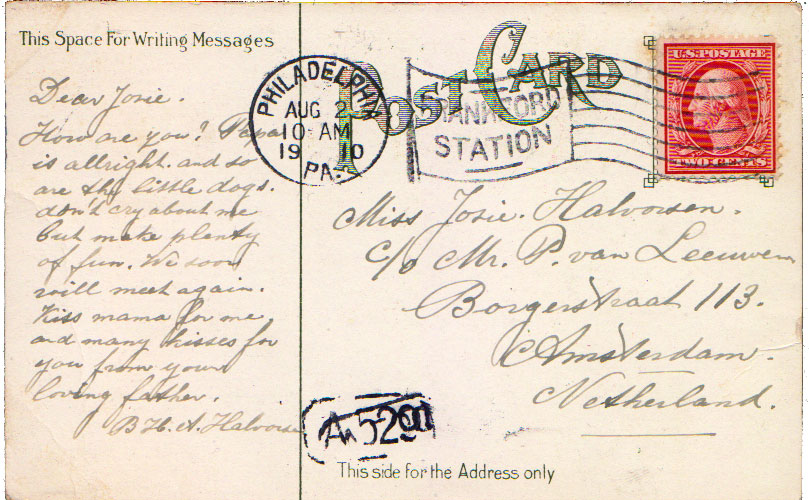 This Space For Writing Messages
POST CARD
U.S. POSTAGE
TWO CENTS
PHILADELPHIA
AUG 2
10 AM
1910
PA.
STATION
Dear Josie.
How are you? Papa
is allright. and so
are the little dogs.
don't cry about me
but make plenty
of fun. We soon
will meet again.
Kiss mama for me
and many kisses for
you from your
loving father.
B H. A. Halvorsen
Miss Josie. Halvorsen.
c/o Mr. P. van Leeuwen
Borgerstraat 113.
Amsterdam.
Netherland.
This side for the Address only